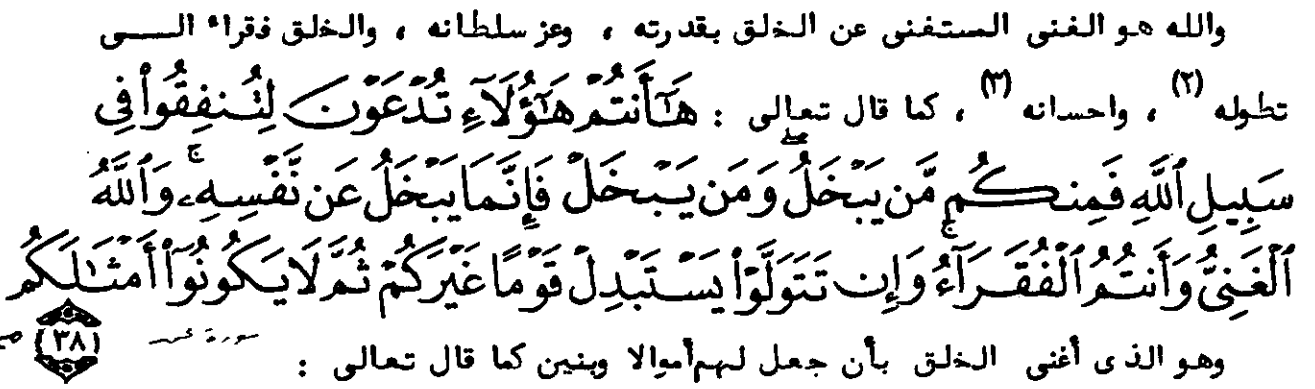 والله هو الغنى المستغنى عن الخلق بقدرته ، وعز سلطانه ، والخلق فقراء الـــى
تطوله (٢) ، واحسانه (٣) ، كما قال تعالى : هَٰٓأَنتُمْ هَٰٓؤُلَآءِ تُدْعَوْنَ لِتُنفِقُوا۟ فِى
سَبِيلِ ٱللَّهِ فَمِنكُم مَّن يَبْخَلُ ۖ وَمَن يَبْخَلْ فَإِنَّمَا يَبْخَلُ عَن نَّفْسِهِۦ ۚ وَٱللَّهُ
ٱلْغَنِىُّ وَأَنتُمُ ٱلْفُقَرَآءُ ۚ وَإِن تَتَوَلَّوْا۟ يَسْتَبْدِلْ قَوْمًا غَيْرَكُمْ ثُمَّ لَا يَكُونُوٓا۟ أَمْثَٰلَكُم
(٣٨) سورة محمد
وهو الذى أغنى الخلق بأن جعل لهم أموالا وبنين كما قال تعالى :